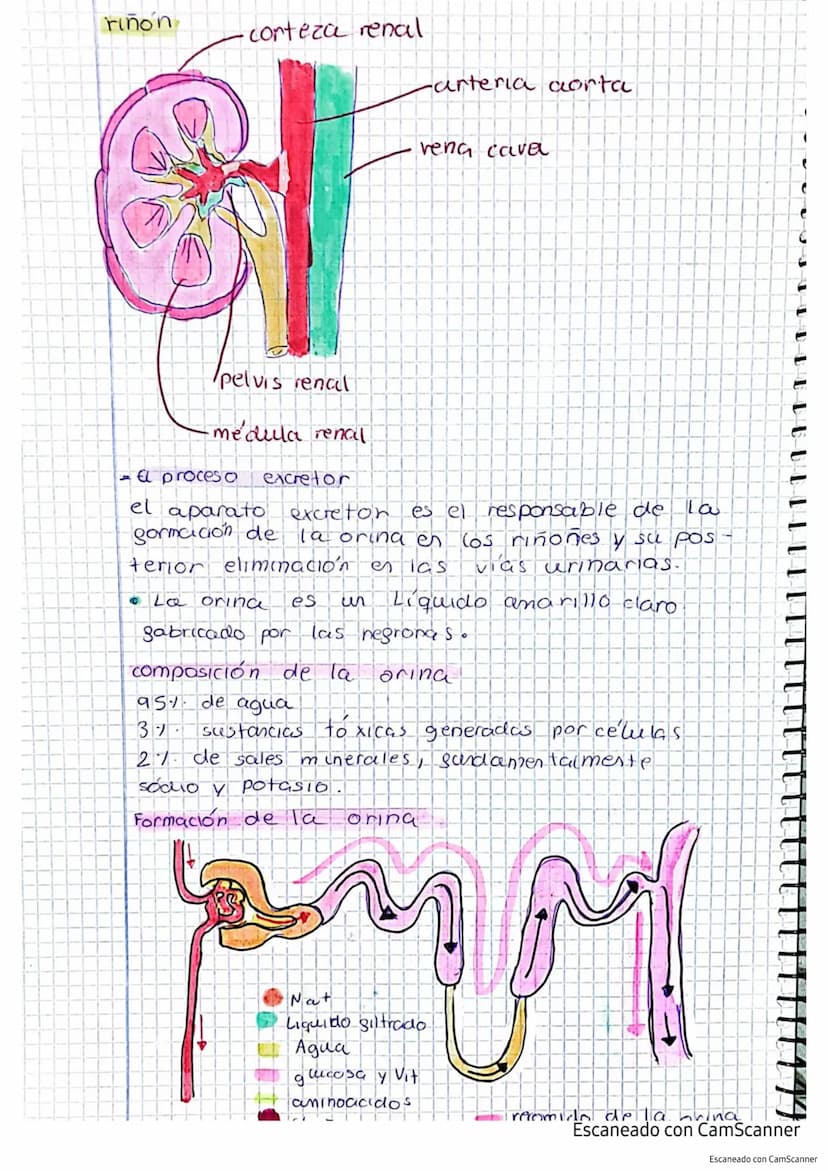 riñón
corteza renal
arteria aorta
vena cava
pelvis renal
médula renal
- El proceso excretor
el aparato excretor es el responsable de la
formación de la orina en los riñoñes y su pos-
terior eliminación en las vías urinarias.
• La orina es un Líquido amarillo claro
fabricado por las nefronas.
composición de la orina
95% de agua
3% sustancias tóxicas generadas por células
2% de sales minerales, fundamentalmente
sódio y potasio.
Formación de la orina
Na+
Liquido filtrado
Agua
glucosa y Vit
aminoacidos
de la orina
Escaneado con CamScanner
Escaneado con CamScanner